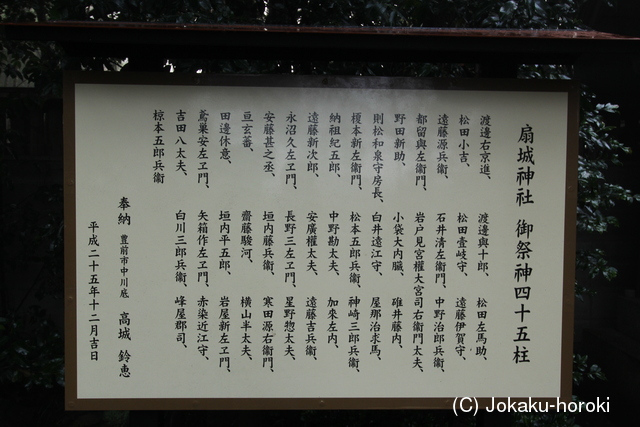 扇城神社 御祭神四十五柱
渡邊右京進、 渡邊與十郎、 松田左馬助、
松田小吉、 松田壹岐守、 遠藤伊賀守、
遠藤源兵衛、 石井清左衛門、 中野治郎兵衛、
都留與左衛門、 岩戸見宮權大宮司右衛門太夫、
野田新助、 小袋大内臓、 碓井藤内、
則松和泉守房長、 白井遠江守、 屋那治求馬、
榎本新左衛門、 松本五郎兵衛、 神崎三郎兵衛、
納祖紀五郎、 中野勘太夫、 加來左内、
遠藤新次郎、 安廣權太夫、 遠藤吉兵衛、
永沼久左ヱ門、 長野三左ヱ門、 星野惣太夫、
安藤甚之丞、 垣内藤兵衛、 寒田源右衛門、
亘玄蕃、 齋藤駿河、 横山半太夫、
田邊休意、 垣内平五郎、 岩屋新左ヱ門、
鳶巣安左ヱ門、 矢箱作左ヱ門、 赤染近江守、
吉田八太夫、 白川三郎兵衛、 峰屋郡司、
椋本五郎兵衛
奉納 豊前市中川底 高城 鈴恵
平成二十五年十二月吉日
(C) Jokaku-horoki